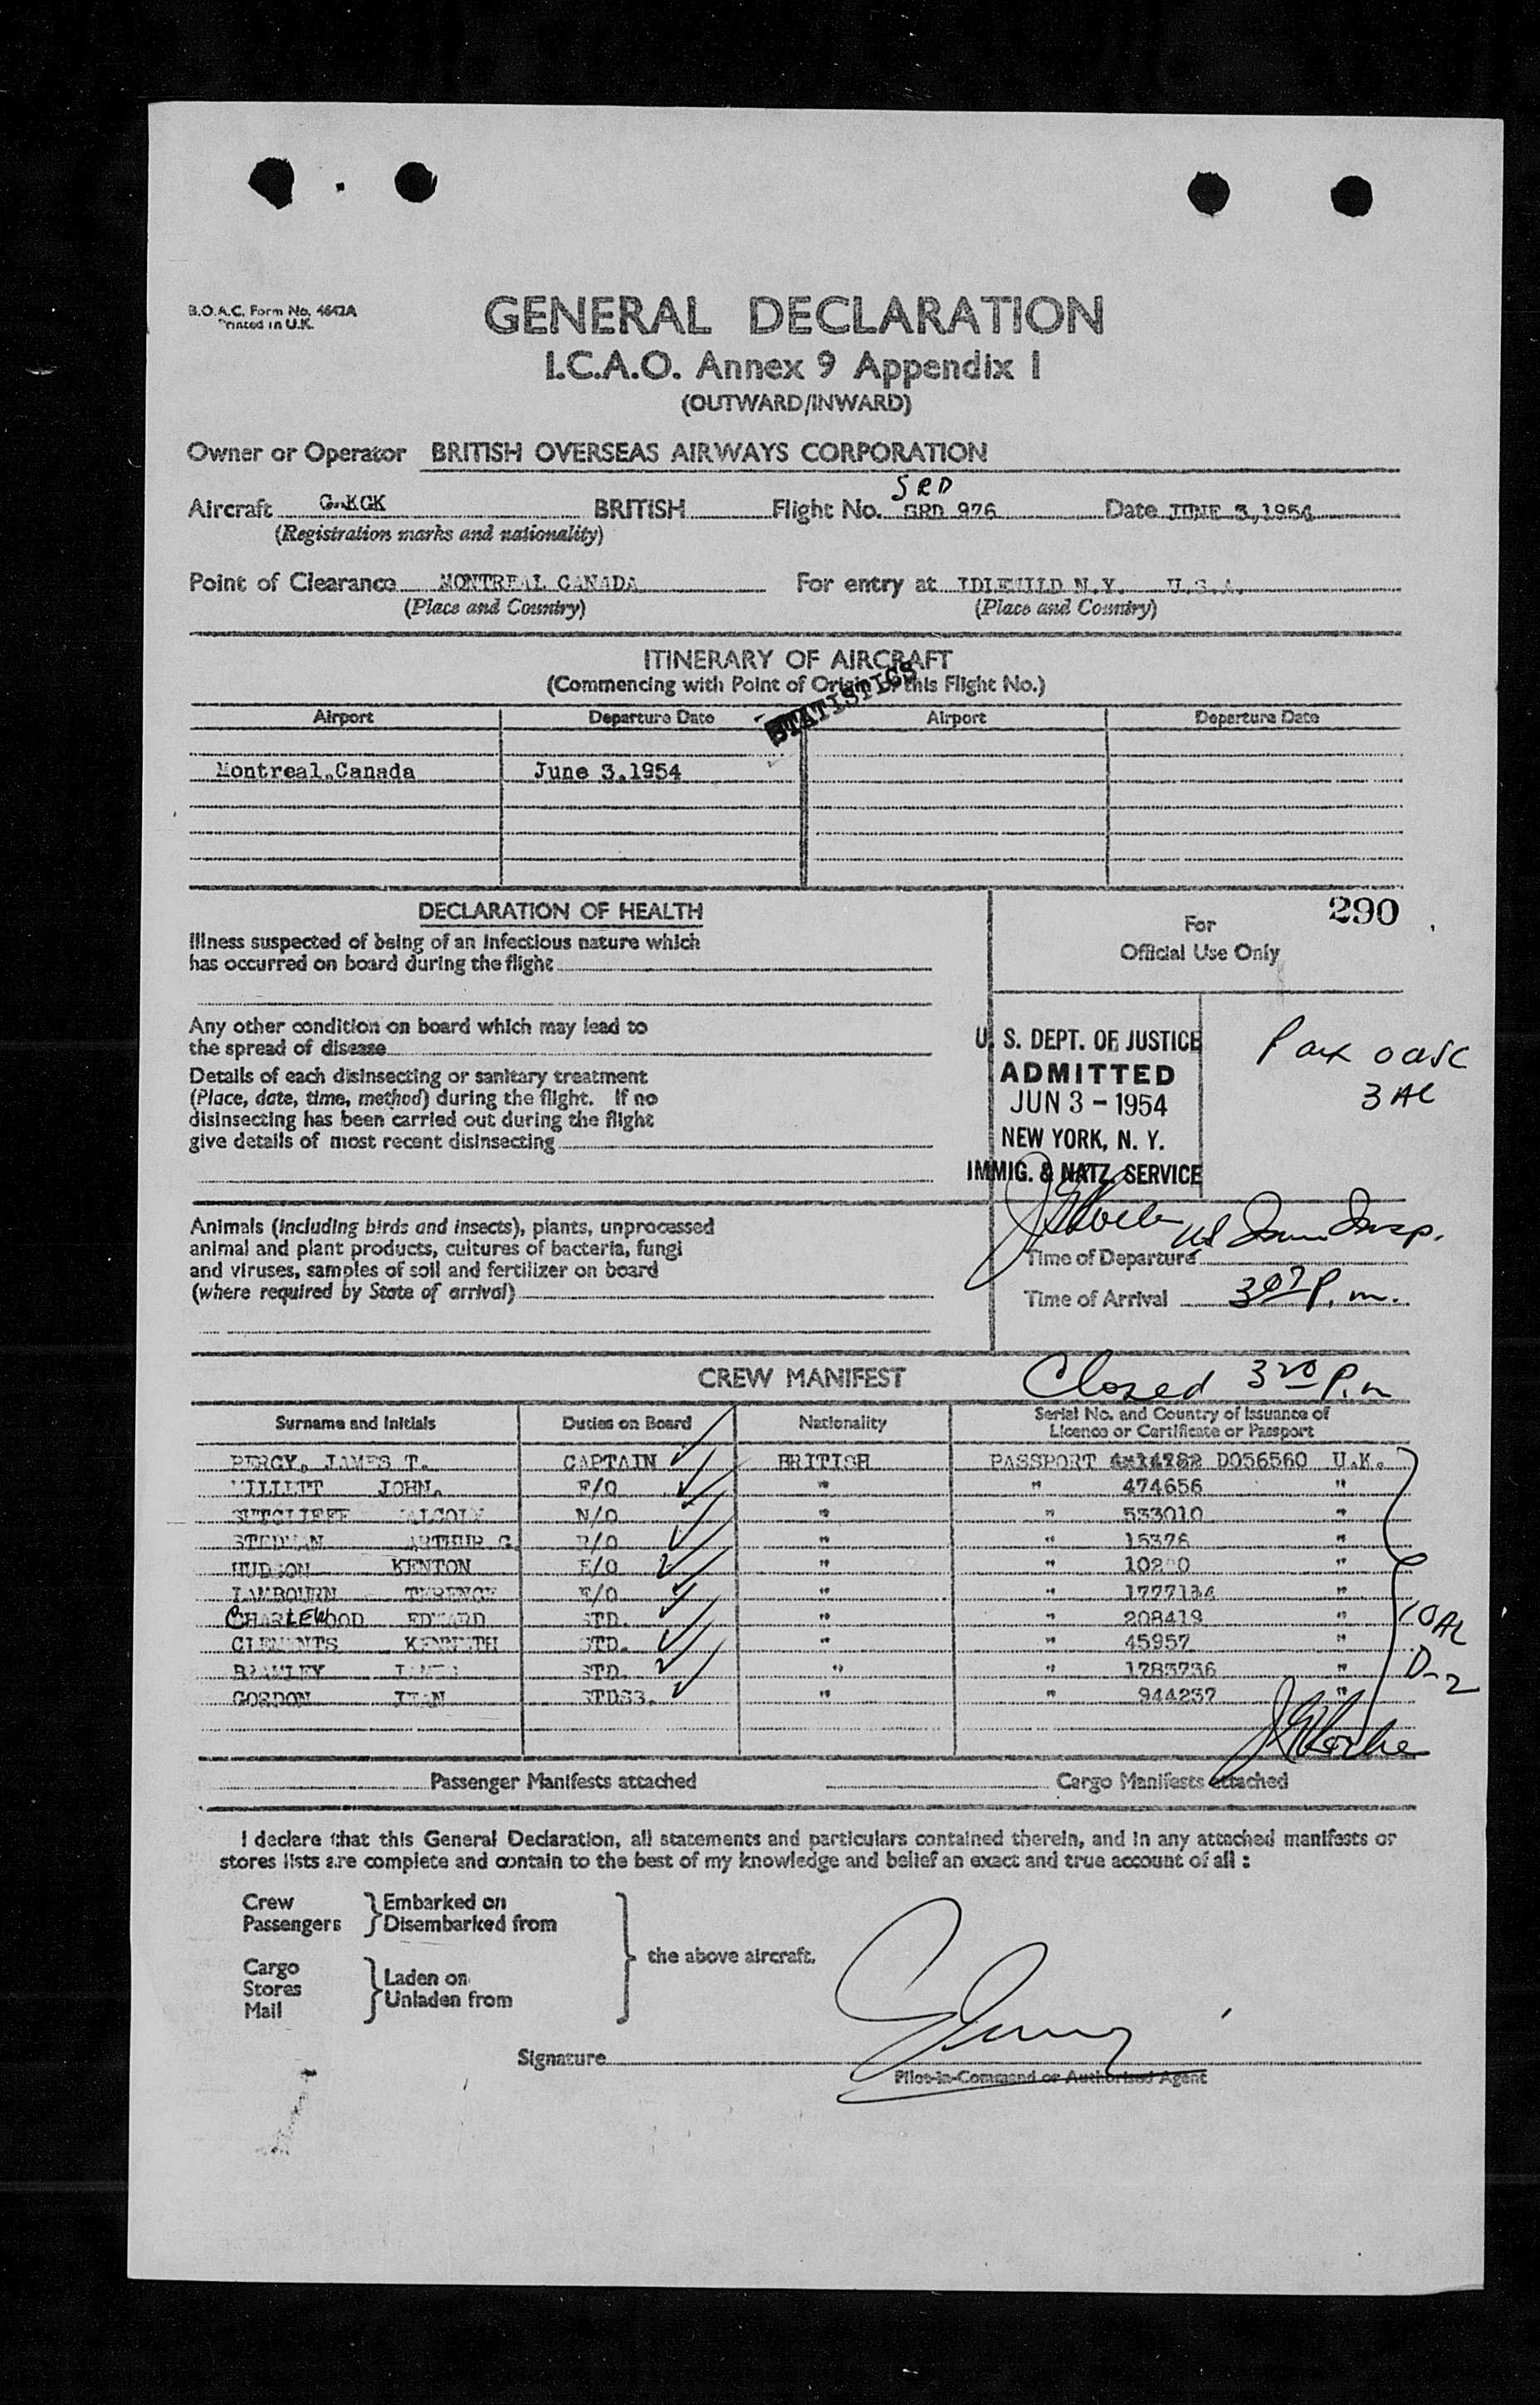 B.O.A.C. Form No. 4642A
Printed in U.K.
GENERAL DECLARATION
I.C.A.O. Annex 9 Appendix 1
(OUTWARD/INWARD)
Owner or Operator BRITISH OVERSEAS AIRWAYS CORPORATION
SRD
Aircraft BRITISH Flight No. 976 Date JUNE 3,1954
(Registration marks and nationality)
Point of Clearance MONTREAL CANADA For entry at IDLEWILD N.Y. U.S.A.
(Place and Country) (Place and Country)
ITINERARY OF AIRCRAFT
(Commencing with Point of Origin this Flight No.)
STATISTICS
Airport Departure Date Airport Departure Date
Montreal,Canada June 3,1954
DECLARATION OF HEALTH
Illness suspected of being of an infectious nature which
has occurred on board during the flight
Any other condition on board which may lead to
the spread of disease
Details of each disinsecting or sanitary treatment
(Place, date, time, method) during the flight. If no
disinsecting has been carried out during the flight
give details of most recent disinsecting
Animals (including birds and insects), plants, unprocessed
animal and plant products, cultures of bacteria, fungi
and viruses, samples of soil and fertilizer on board
(where required by State of arrival)
290
For
Official Use Only
U. S. DEPT. OF JUSTICE
ADMITTED
JUN 3 - 1954
NEW YORK, N. Y.
IMMIG. & NATZ. SERVICE
3 AL
Insp.
Time of Departure
Time of Arrival 3 07 P.m.
CREW MANIFEST
Closed 3 20 P.m
Surname and Initials Duties on Board Nationality Serial No. and Country of Issuance of
Licence or Certificate or Passport
PERCY, JAMES T. CAPTAIN BRITISH PASSPORT D056560 U.K.
JOHN. F/O " " 474656 "
SUTCLIFFE MALCOLM N/O " " 533010 "
STEDMAN ARTHUR G. R/O " " 15376 "
HUDSON KENTON E/O " " "
LAMBOURN TERENCE E/O " " 1777134 "
CHARLEWOOD EDWARD STD. " " 208419 "
CLEMENTS KENNETH STD. " " 45957 "
BRAMLEY JAMES STD. " " 1783736 "
GORDON JEAN STDSS. " " 944237 "
10 AL
D-2
Passenger Manifests attached Cargo Manifests attached
I declare that this General Declaration, all statements and particulars contained therein, and in any attached manifests or
stores lists are complete and contain to the best of my knowledge and belief an exact and true account of all :
Crew
Passengers
Embarked on
Disembarked from
Cargo
Stores
Mail
Laden on
Unladen from
the above aircraft.
Signature
Pilot-in-Command or Authorised Agent